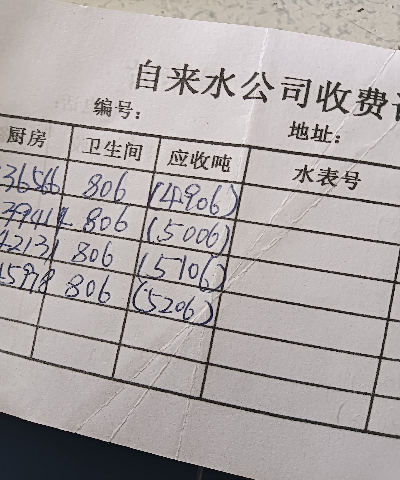 自来水公司收费
编号： 地址：
厨房 卫生间 应收吨 水表号
806 (4906)
806 (5006)
806 (5106)
806 (5206)